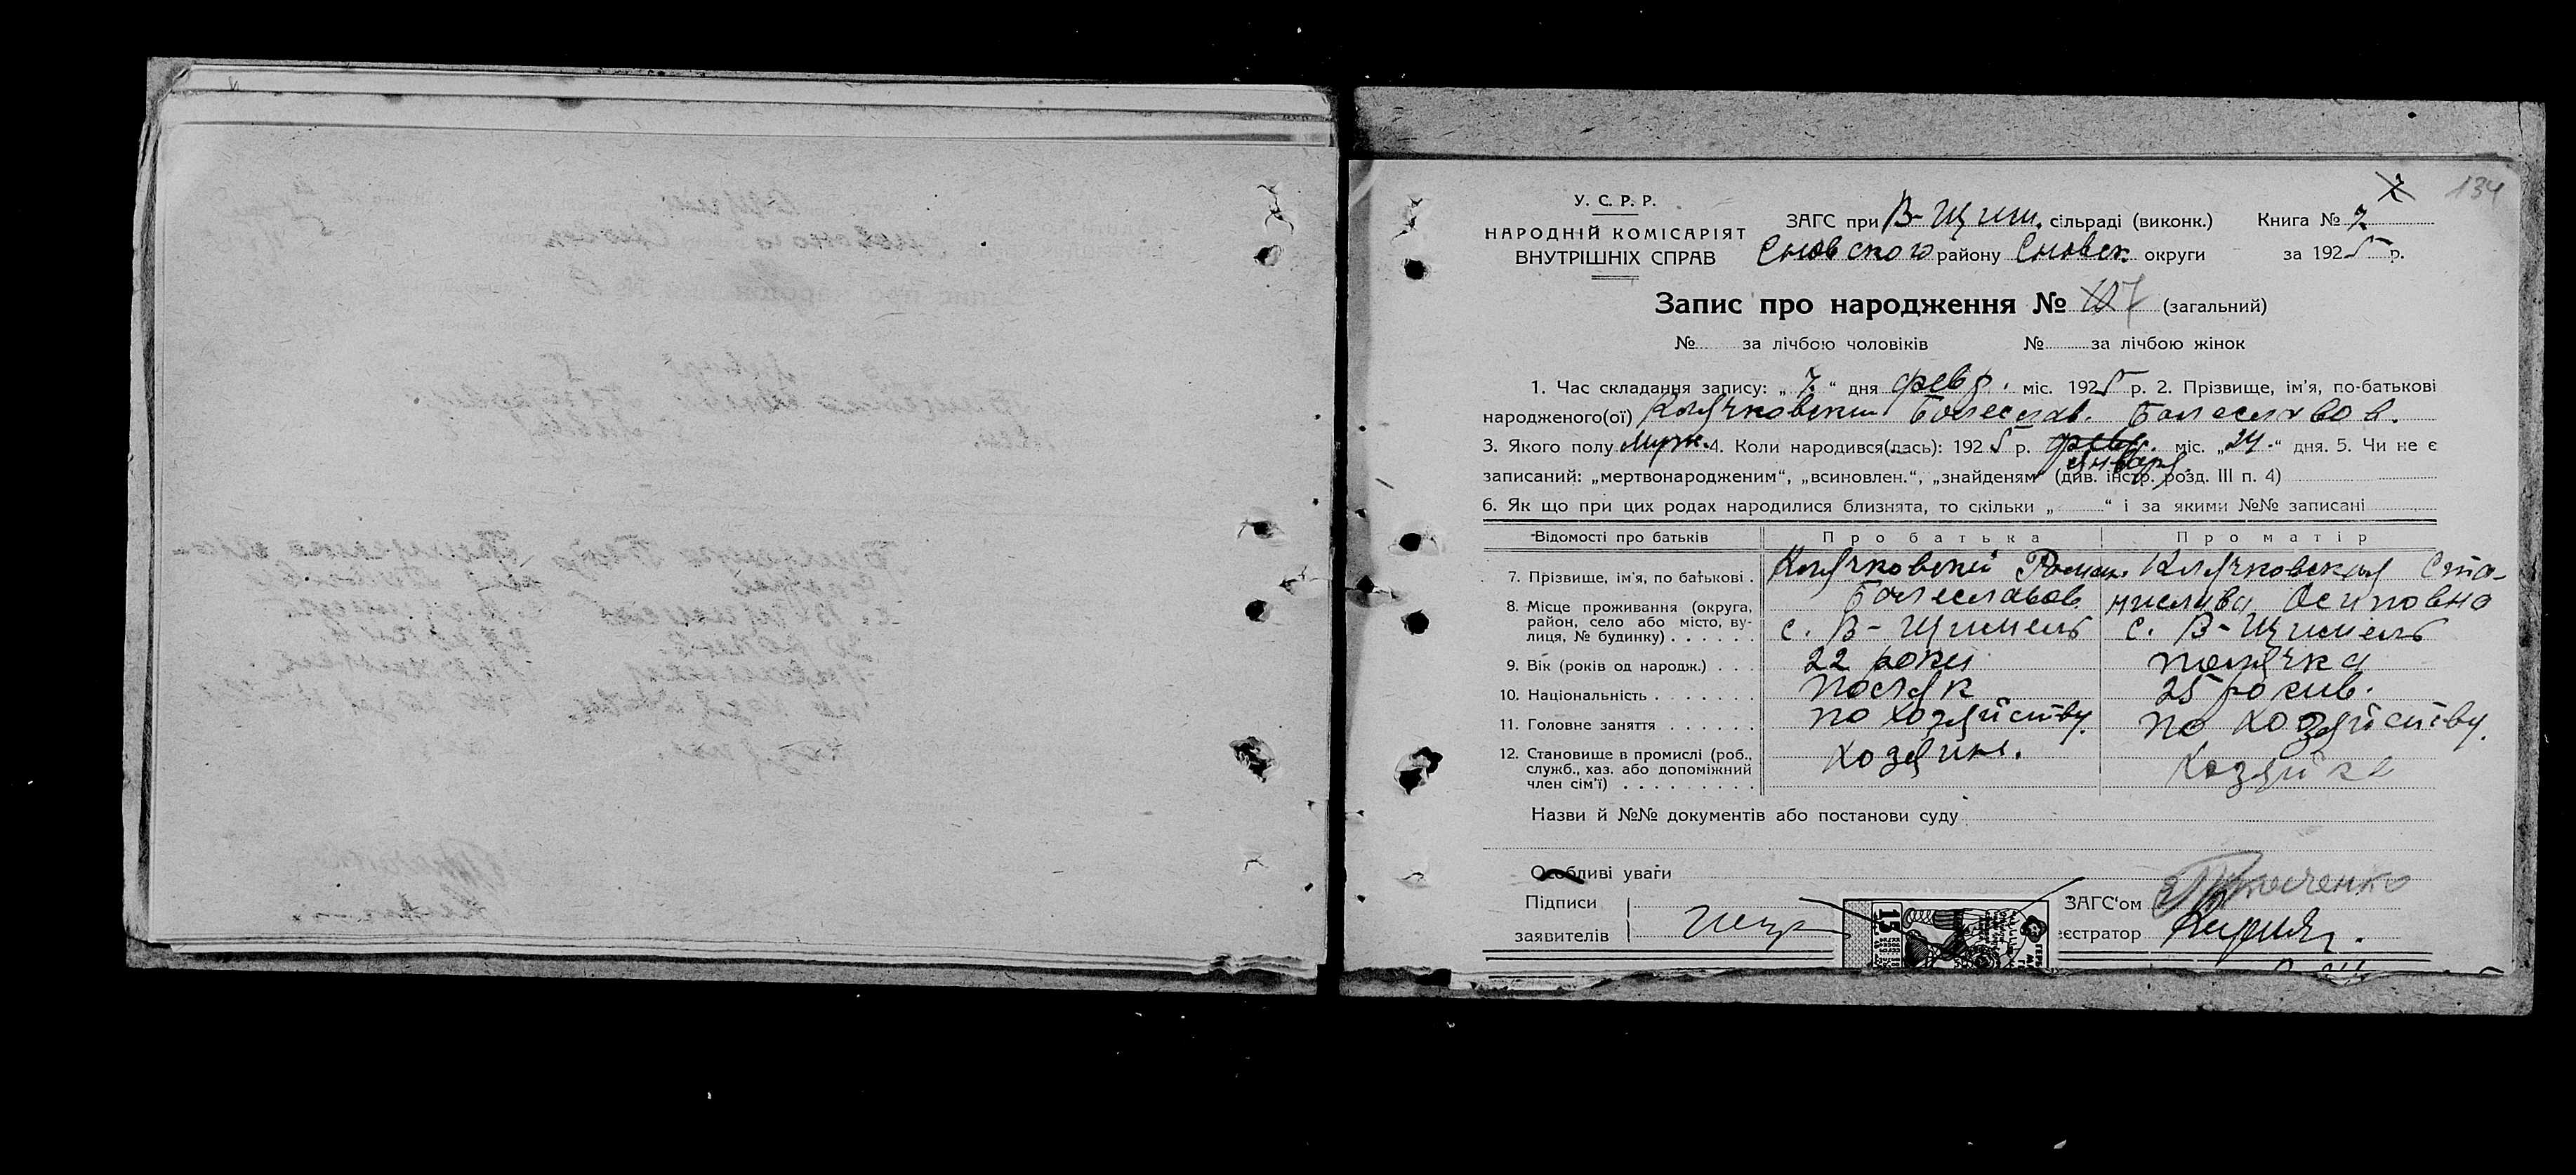 134
У. С. Р. Р.
НАРОДНІЙ КОМІСАРІЯТ
ВНУТРІШНІХ СПРАВ
ЗАГС при В-Щим. сільраді (виконк.) Книга № 2
Сновского району Сновск. округи за 1925 р.
Запис про народження № 7 (загальний)
№ за лічбою чоловіків № за лічбою жінок
1. Час складання запису: „ 7 “ дня февр. міс. 1925 р. 2. Прізвище, ім’я, по-батькові
народженого(ої) Клячковский Болеслав. Болеславов.
3. Якого полу муж. 4. Коли народився(лась): 1925 р. февр. міс. „24.“ дня. 5. Чи не є
января.
записаний: „мертвонародженим“, „всиновлен.“, „знайденям“ (див. інстр. розд. III п. 4)
6. Як що при цих родах народилися близнята, то скільки „ “ і за якими №№ записані
Відомості про батьків Про батька Про матір
7. Прізвище, ім’я, по батькові . Клячковский Роман. Клячковская Ста-
Болеславов. нислава Осиповна
8. Місце проживання (округа, район, село або місто, ву-лиця, № будинку) . . . . . . с. В-Щимель с. В-Щимель
9. Вік (років од народж.) . . . 22 роки полячка
10. Національність . . . . . . . поляк 25 років.
11. Головне заняття . . . . . . по хозяйству. по хозяйству.
12. Становище в промислі (роб., служб., хаз. або допоміжний член сім’ї) . . . . . . . . . хозяин. хозяйка
Назви й №№ документів або постанови суду
Особливі уваги
Підписи
заявителів
15
ЗАГС‘ом
єстратор